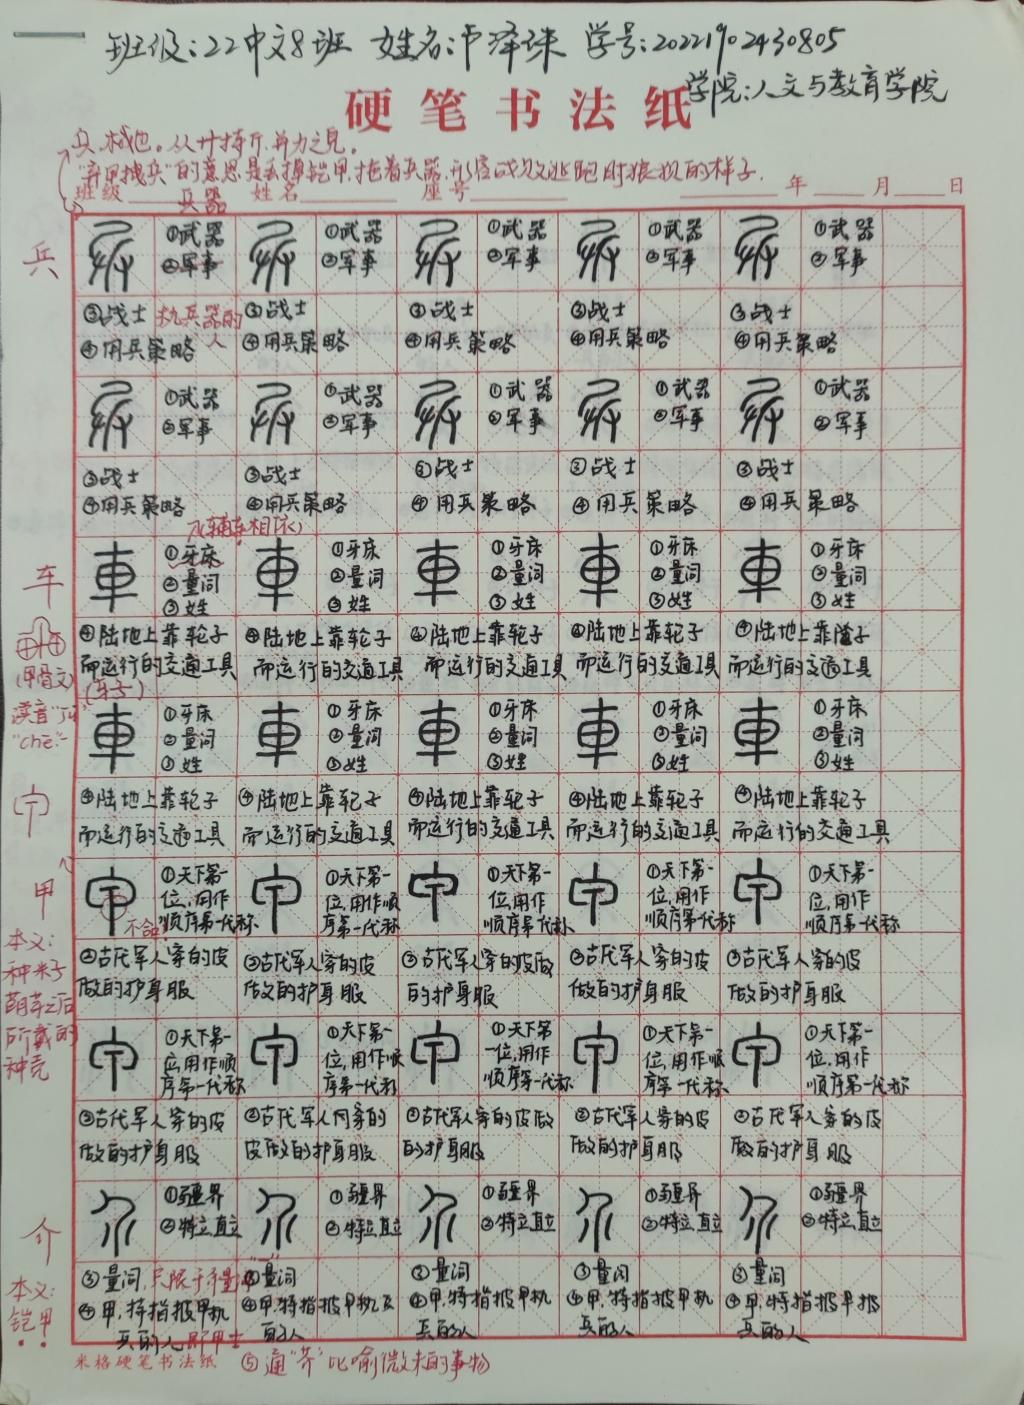 班级:22中文8班 姓名:卢泽珠 学号:20221902430805
学院:人文与教育学院
硬笔书法纸
兵,械也。从廾持斤,并力之皃。
"弃甲拽兵"的意思是丢掉铠甲,拖着兵器,形容战败逃跑时狼狈的样子.
班级 姓名 座号 年 月 日
兵器
兵
①武器 ①武器 ①武器 ①武器 ①武器
②军事 ②军事 ②军事 ②军事 ②军事
③战士 执兵器的人 ③战士 ③战士 ③战士 ③战士
④用兵策略 ④用兵策略 ④用兵策略 ④用兵策略 ④用兵策略
①武器 ①武器 ①武器 ①武器 ①武器
②军事 ②军事 ②军事 ②军事 ②军事
③战士 ③战士 ③战士 ③战士 ③战士
④用兵策略 ④用兵策略 ④用兵策略 ④用兵策略 ④用兵策略
(辅车相依)
车
車 ①牙床 車 ①牙床 車 ①牙床 車 ①牙床 車 ①牙床
②量词 ②量词 ②量词 ②量词 ②量词
③姓 ③姓 ③姓 ③姓 ③姓
④陆地上靠轮子 ④陆地上靠轮子 ④陆地上靠轮子 ④陆地上靠轮子 ④陆地上靠轮子
而运行的交通工具 而运行的交通工具 而运行的交通工具 而运行的交通工具 而运行的交通工具
(甲骨文)
读音"jū"
"chē"
車 ①牙床 車 ①牙床 車 ①牙床 車 ①牙床 車 ①牙床
②量词 ②量词 ②量词 ②量词 ②量词
③姓 ③姓 ③姓 ③姓 ③姓
④陆地上靠轮子 ④陆地上靠轮子 ④陆地上靠轮子 ④陆地上靠轮子 ④陆地上靠轮子
而运行的交通工具 而运行的交通工具 而运行的交通工具 而运行的交通工具 而运行的交通工具
甲
①天下第一 ①天下第一 ①天下第一 ①天下第一 ①天下第一
位,用作 位,用作顺 位,用作 位,用作 位,用作
顺序第一代称 序第一代称 顺序第一代称 顺序第一代称 顺序第一代称
本义:
种籽
萌芽之后
所戴的
种壳
②古代军人穿的皮 ②古代军人穿的皮 ②古代军人穿的皮做 ②古代军人穿的皮 ②古代军人穿的皮
做的护身服 做的护身服 的护身服 做的护身服 做的护身服
①天下第一 ①天下第一 ①天下第 ①天下第一 ①天下第一
位,用作顺 位,用作顺 一位,用作 位,用作顺 位,用作
序第一代称 序第一代称 顺序第一代称 序第一代称 顺序第一代称
②古代军人穿的皮 ②古代军人穿的 ②古代军人穿的皮做 ②古代军人穿的皮 ②古代军人穿的皮
做的护身服 皮做的护身服 的护身服 做的护身服 做的护身服
介
①疆界 ①疆界 ①疆界 ①疆界 ①疆界
②特立,直立 ②特立,直立 ②特立,直立 ②特立,直立 ②特立,直立
本义:
铠甲
③量词, ③量词 ③量词 ③量词 ③量词
④甲,特指披甲执 ④甲,特指披甲执兵 ④甲,特指披甲执 ④甲,特指披甲执 ④甲,特指披甲执
兵的人 即甲士 的人 兵的人 兵的人 兵的人
米格硬笔书法纸 ⑤通"芥"比喻微末的事物